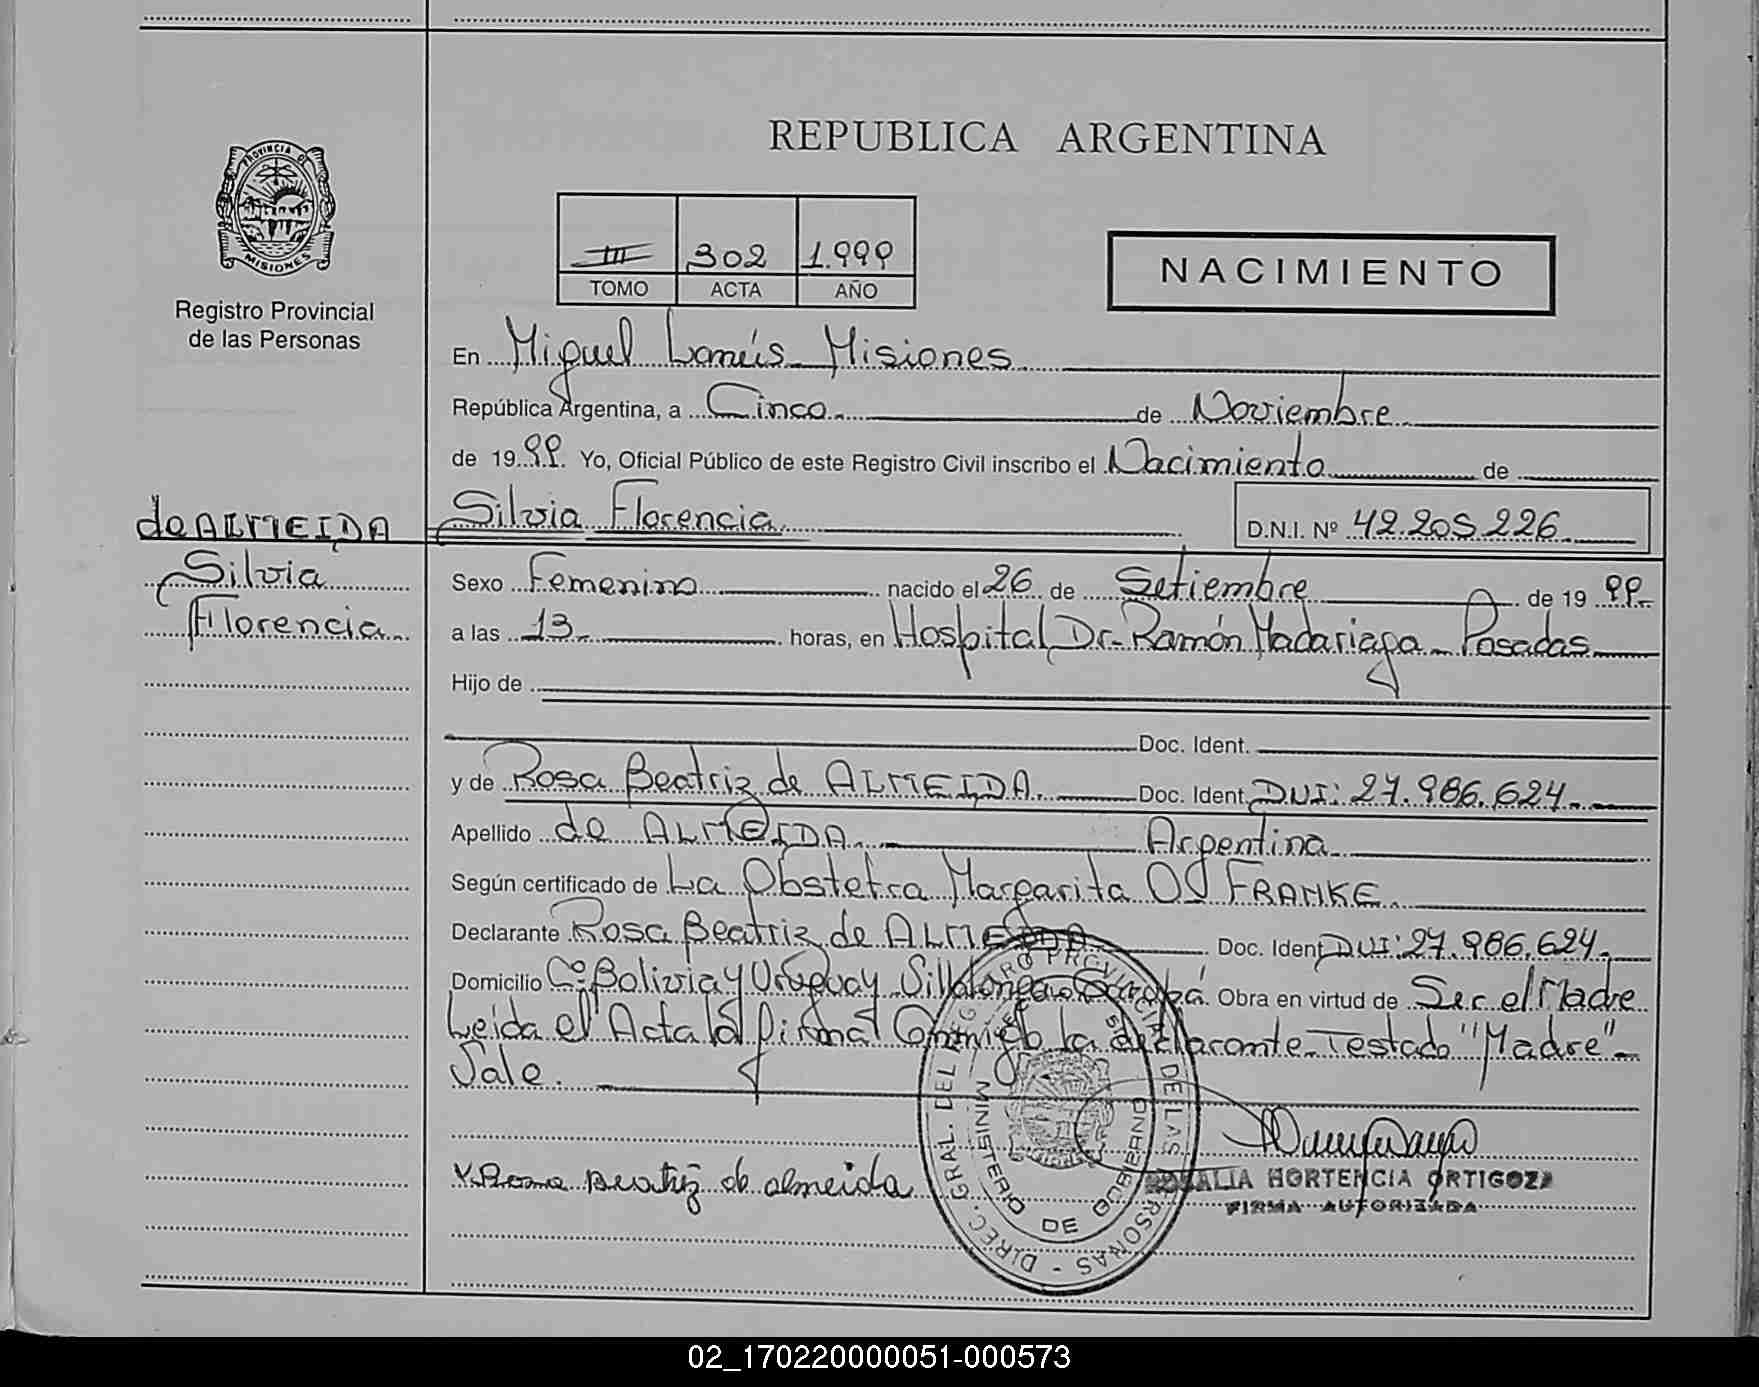 REPUBLICA ARGENTINA
PROVINCIA DE
MISIONES
Registro Provincial
de las Personas
III 302 1.999
TOMO ACTA AÑO
NACIMIENTO
En Miguel Lanús Misiones
República Argentina, a Cinco de Noviembre
de 1999. Yo, Oficial Público de este Registro Civil inscribo el Nacimiento de
de ALMEIDA
Silvia
Florencia
Silvia Florencia D.N.I. Nº 42.205.226
Sexo Femenino nacido el 26 de Setiembre de 1999
a las 13 horas, en Hospital Dr. Ramón Madariaga - Posadas
Hijo de
Doc. Ident.
y de Rosa Beatriz de ALMEIDA. Doc. Ident. DNI: 27.986.624.
Apellido de ALMEIDA. Argentina
Según certificado de La Obstetra Margarita O. FRANKE.
Declarante Rosa Beatriz de ALMEIDA Doc. Ident. DNI: 27.986.624.
Domicilio Cº Bolivia y Uruguay Garupá. Obra en virtud de Ser el Madre
Leida el Acta la firma Conmigo la declarante. Testado "Madre"
Vale.
Rosa Beatriz de almeida
ROSALIA HORTENCIA ORTIGOZA
FIRMA AUTORIZADA
DIREC. GRAL. DEL REGISTRO PROVINCIAL DE LAS PERSONAS
MINISTERIO DE GOBIERNO
02_170220000051-000573